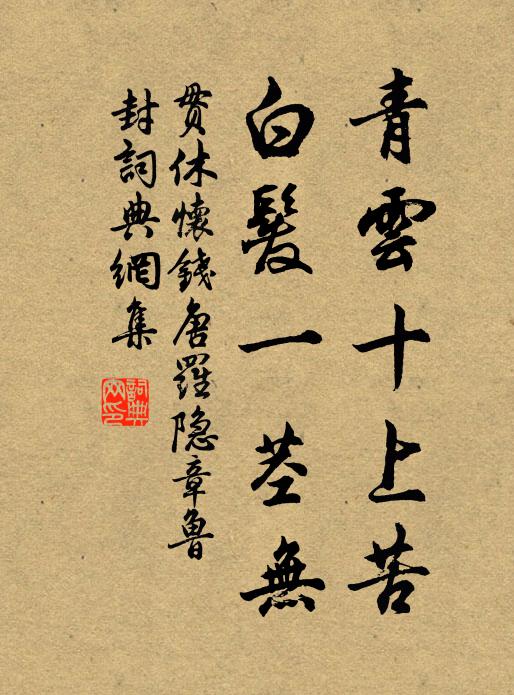 青雲十上苦
白髮一莖無
貫休懷錢唐羅隐章魯
封詞典網集
詞典
網印